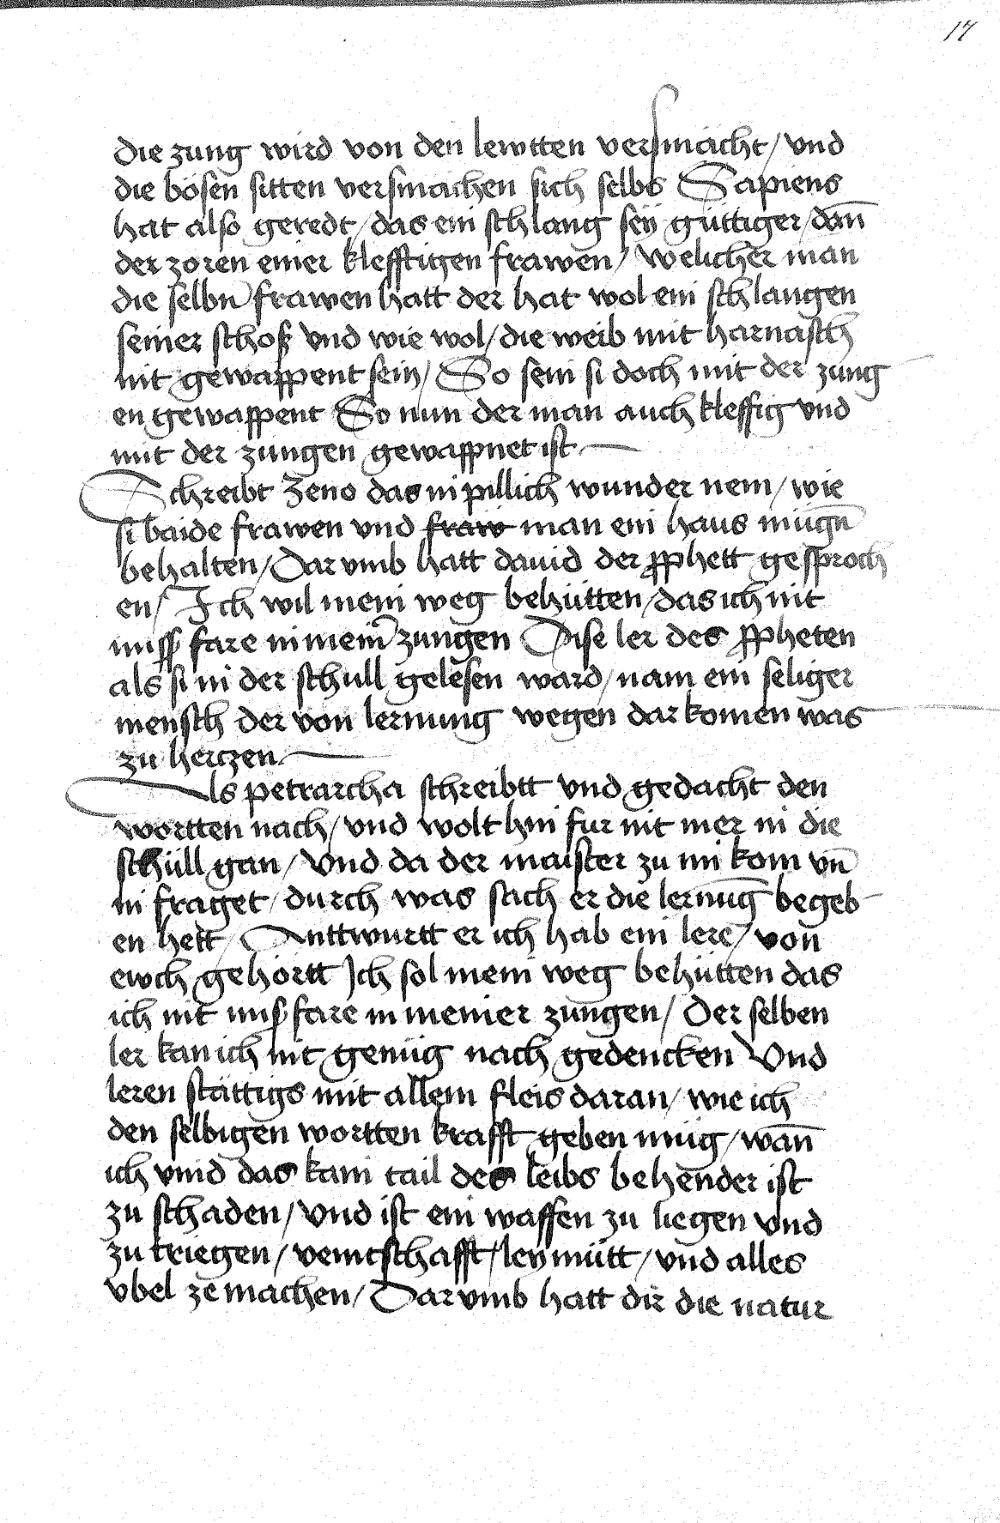 17
die zung wird von den lewtten versmächt / vnd
die bösen sitten versmächen sich selbs Sapiens
hat also geredt / das ein schlang seÿ güttiger / dan̄
der zoren einer klefftigen frawen / welicher man
die selbn̄ frawen hatt der hat wol ein schlangen
seiner schoß vnd wie wol / die weib mit harnasch
nit gewappent sein / So sein si doch mit der zung
en gewappent So nun der man auch kleffig vnd
mit der zungen gewappnet ist
Schreibt Zeno das in pillich wunder nem / wie
si baide frawen vnd fraw man ein haus mügn̄
behalten / Dar vmb hatt dauid der ꝓphett gesproch
en / Ich wil mein weg behütten / das ich nit
miss fare in mein̄ zungen Dise ler des ꝓpheten
als si in der schull gelesen ward / nam ein seliger
mensch der von lernung wegen dar komen was
zu hertzen
Als petrarcha schreibtt vnd gedacht den
wortten nach / vnd wolt hin fur nit mer in die
schüll gan / Vnd da der maister zu im kom vn̄
in fraget / durch was sach er die lernūg begeb
en hett / Anttwurtt er ich hab ein lere / von
ewch gehörtt Ich sol mein weg behütten das
ich nit miss fare in meiner zungen / Der selben
ler kan ich nit genüg nach gedencken Vnd
leren stättigs mit allem fleis daran / wie ich
den selbigen wortten krafft geben müg / wan̄
ich vind das kain tail des leibs behender ist
zu schaden / Vnd ist ein waffen zu liegen vnd
zu triegen / veintschafft / leÿmütt / vnd alles
vbel ze machen / Dar vmb hatt dir die natur